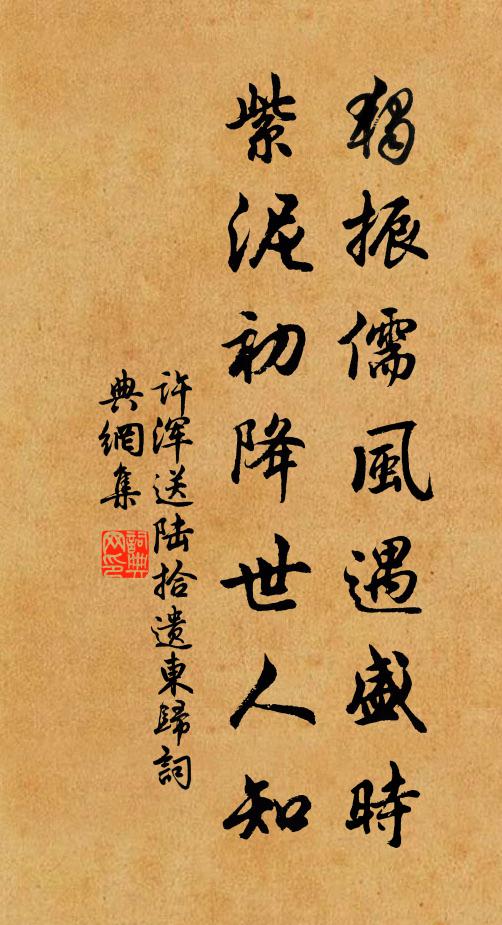 獨振儒風遇盛時
紫泥初降世人知
許渾送陸拾遺東歸詞
典網集
詞典网印